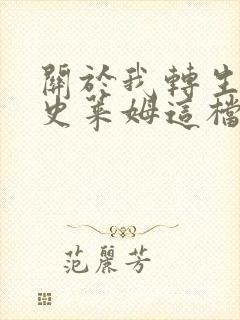 關於我轉生
史萊姆這檔
范麗芳